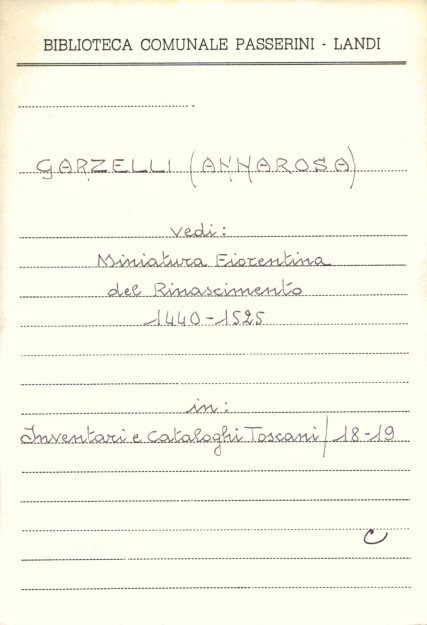 BIBLIOTECA COMUNALE PASSERINI - LANDI
GARZELLI (ANNAROSA)
vedi:
Miniatura Fiorentina
del Rinascimento
1440-1525
in:
Inventari e Cataloghi Toscani/18-19
C